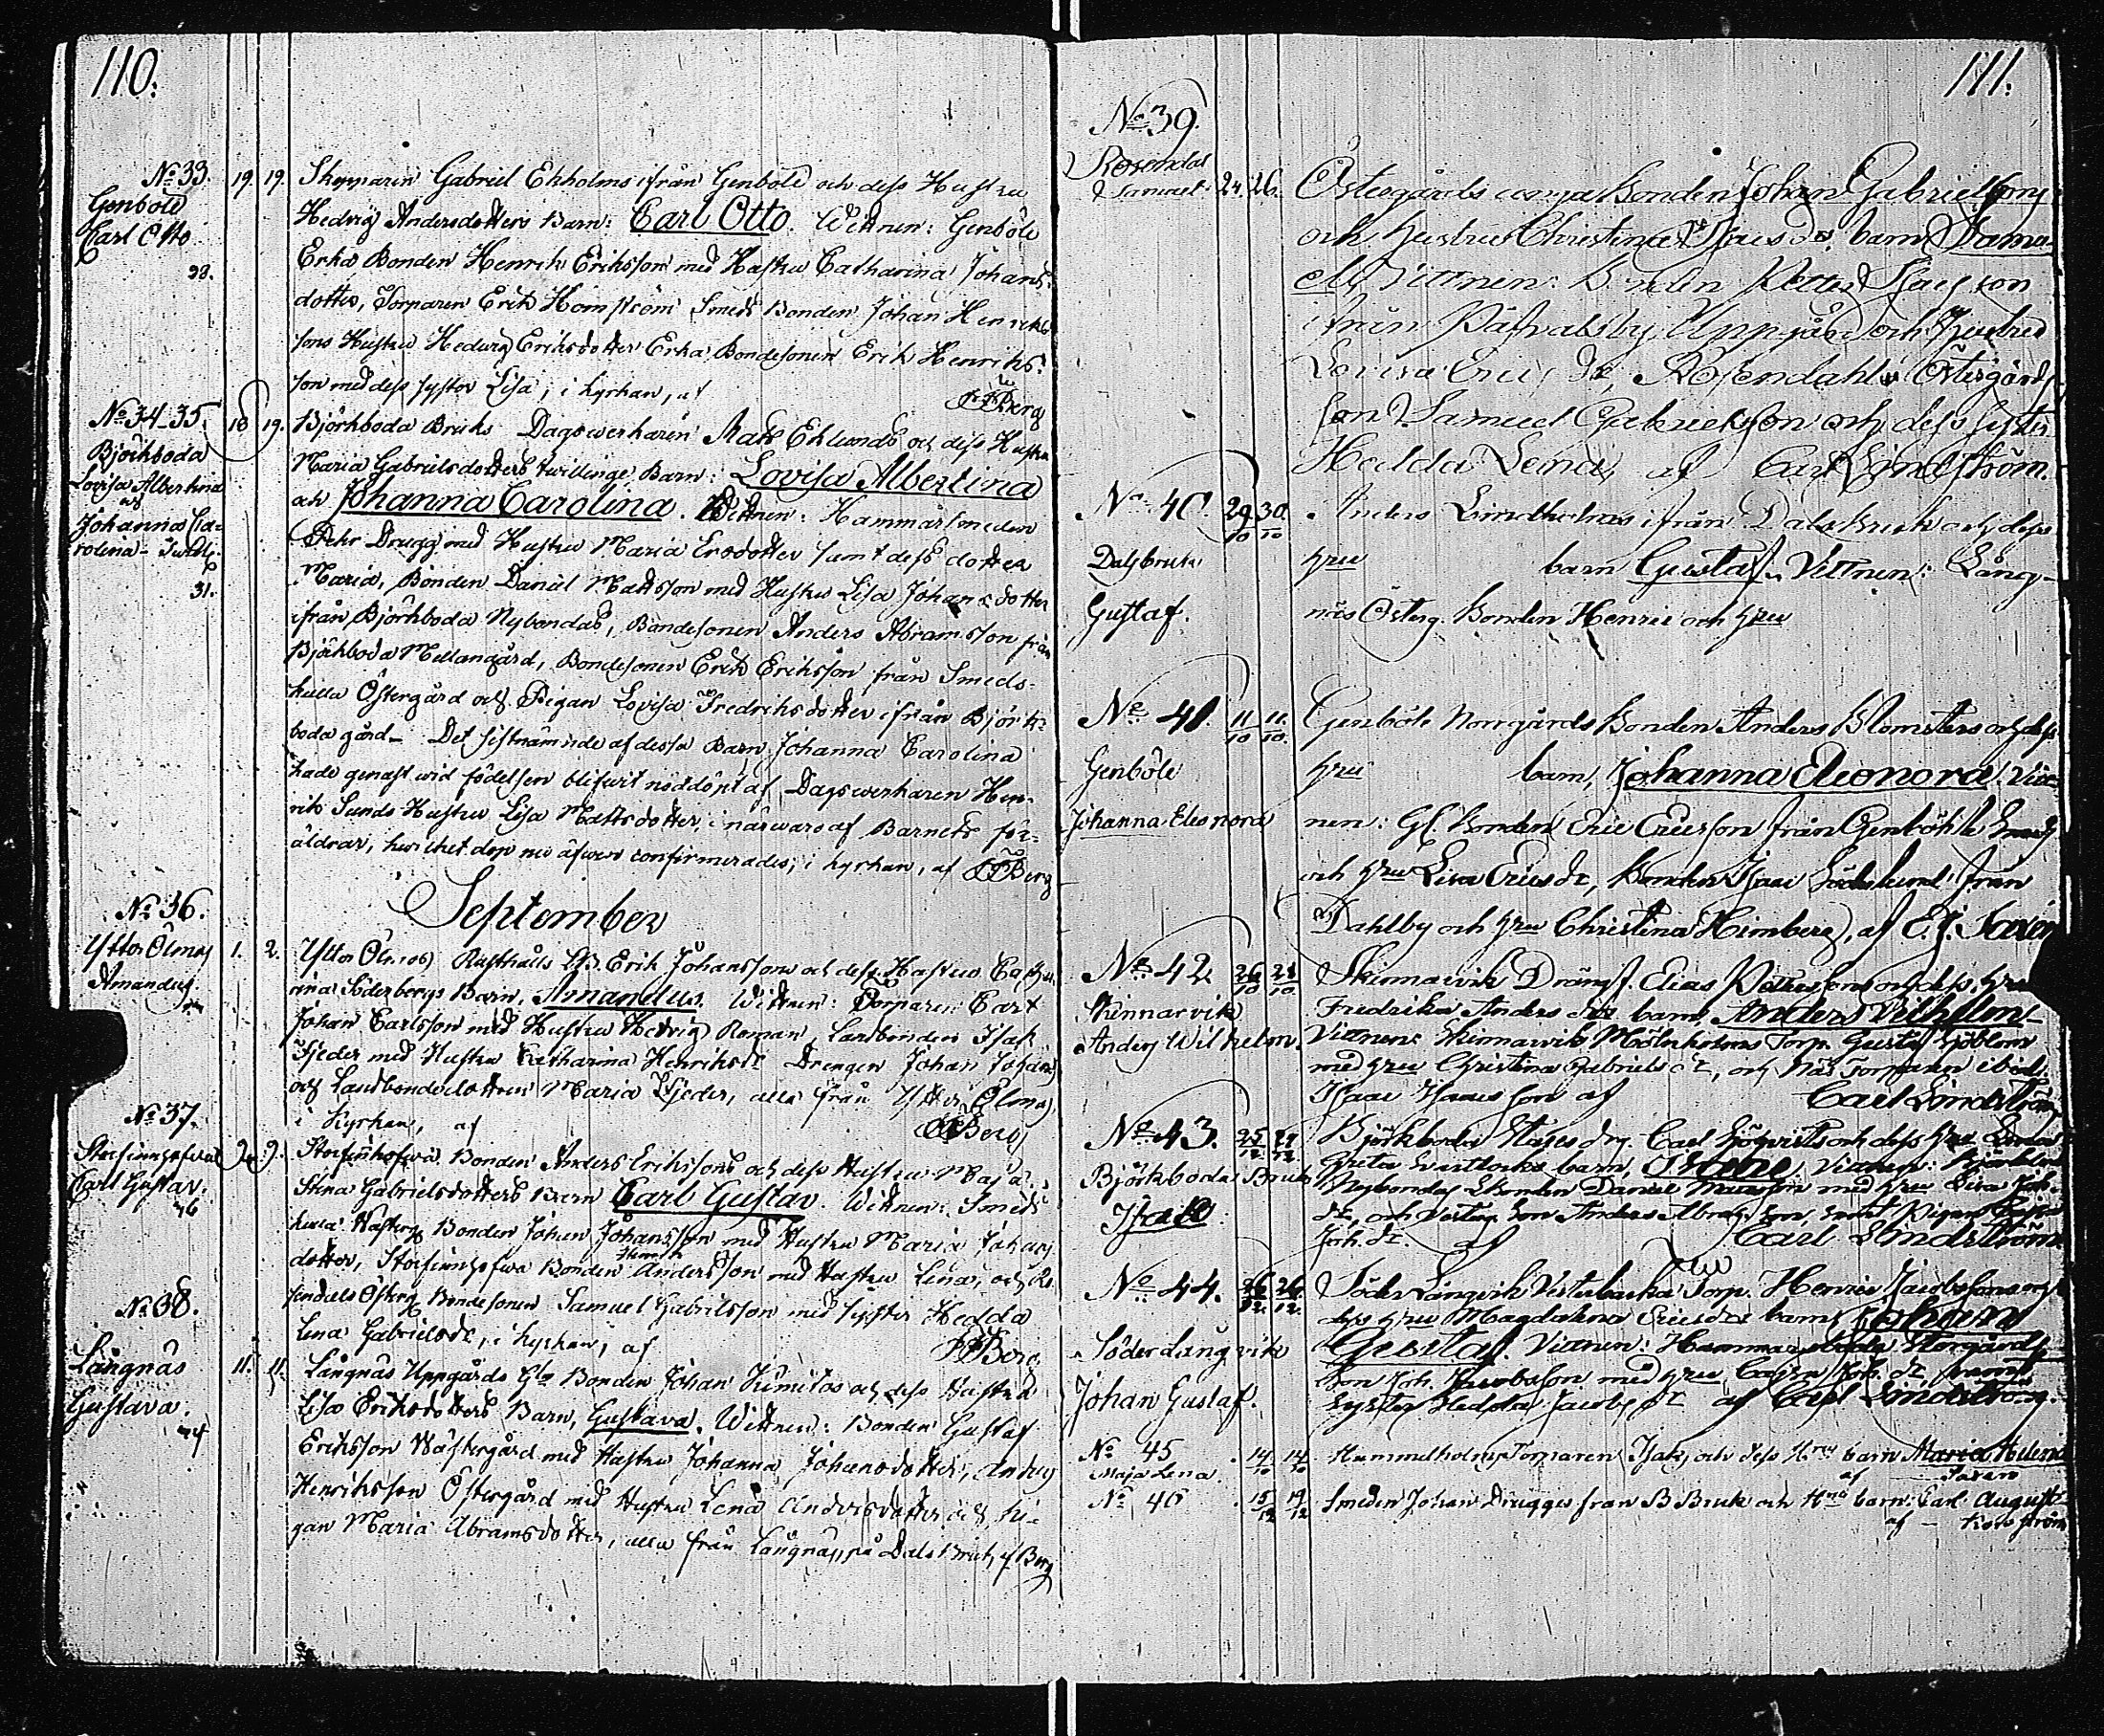 110.
No 33.
Genböle
Carl Otto
38.
19. 19.
Skepparen Gabriel Ekholms ifrån Genböle och dess Hustru
Hedvig Andersdotters Barn: Carl Otto. Wittnen: Genböle
Erkas Bonden Henrik Eriksson med Hustru Catharina Johans-
dotter, Torparen Erik Holmström Smeds Bonden Johan Henriks
sons Hustru Hedwig Eriksdotter Erka Bondesonen Erik Henriks-
son med dess syster Lisa, i kyrkan, af
Berg
No 34-35.
Björkboda
Lovisa Albertina
och
Johanna Ca-
rolina - Twill.
31.
18 19.
Björkboda Bruks Dagswerkaren Mats Eklunds och dess Hustru
Maria Gabrielsdotters twillinge Barn: Lovisa Albertina
och Johanna Carolina. Wittnen: Hammarsmeden
Pehr Drugg med Hustru Maria Ersdotter samt dess dotter
Maria, Bonden Daniel Mattsson med Hustru Lisa Johansdotter
ifrån Björkboda Nybondas, Bondesonen Anders Abramsson från
Björkboda Mellangård, Bondesonen Erik Eriksson från Smeds-
kulla Östergård och Pigan Lovisa Fredriksdotter ifrån Björk-
boda gård - Det sistnämnde af dessa Barn Johanna Carolina
hade genast wid födelsen blifwit nöddöpt af Dagswerkaren Hen-
rik Sunds Hustru Lisa Mattsdotter, i närwaro af Barnets för-
äldrar, hwilket dop nu äfwen confirmerades, i kyrkan, af Berg
September
No 36.
Ytter Ölmos
Amandus.
1. 2.
Ytter Ölmos Rusthålls Erik Johanssons och dess Hustru Catha
rina Söderbergs Barn, Amandus. Wittnen: Torparen Carl
Johan Carlsson med Hustru Hedvig Roman, Landbonden Isak
Fjeder med Hustru Catharina Henriksdr Drengen Johan Johans
och Landbondedottren Maria Fjeder, alla från Ytter Ölmos,
i Kyrkan, af Berg
No 37.
Carl Gustav.
76
9.
Bonden Anders Erikssons och dess Hustru Maja
Stina Gabrielsdotters Barn Carl Gustav. Wittnen: Smeds
kulla Wästerg. Bonden Johan Johansson med Hustru Maria Johans
Henrik
dotter, Bonden Andersson med Hustru Lena, och Ro
sendals Österg Bondesonen Samuel Gabrielsson med syster Hedda
Lena Gabrielsdr, i kyrkan, af Berg
No 38.
Långnäs
Gustava.
74
11. 11.
Långnäs Uppgårds Bonden Johan Kimitos och dess Hustru
Lisa Eriksdotters Barn, Gustava. Wittnen: Bonden Gustaf
Eriksson Wästergård med Hustru Johanna Johansdotter, Anders
Henriksson Östergård med Hustru Lena Andersdotter och Pi-
gan Maria Abramsdotter, alla från Långnäs, på Dals Bruk, af Berg
111.
No 39.
Rosendal
Samuel
24. 26.
Östergårds Bonden Johan Gabrielssons
och hustru Christina Isacs dr. barn Samu-
el. Vittnen: Bonden Petter Isacsson
ifrån Påfvalsby Uppgård och Hustru
Lovisa Erics dr, Rosendahls Östergårds
son Samuel Gabrielsson och dess syster
Hedda Lena, af Carl Lindström.
No 40.
Dalsbruk
Gustaf.
29/10 30/10
Anders Lindholms ifrån Dals Bruk och dess
Hru barn Gustaf. Vittnen: Lång-
näs Österg. Bonden Henric och Hru
No 41.
Genböle
Johanna Eleonora
11/10 11/10.
Genböle Norrgårds Bonden Anders Blomsters och dess
Hru barn, Johanna Eleonora. Vitt-
nen: Gl. Bonden Eric Ericsson från Genböle Smeds
och Hru Lisa Erics dr, Bonden Isaac Söderlund från
Dahlby och Hru Christina Himberg, af E.J. Saxén
No 42.
Skinnarvik
Anders Wilhelm.
26/10 28/10.
Skinnarvik Drängs. Elias Peterssons och dess Hru
Fredrika Anders drs barn Anders Vilhelm-
Vittnen: Skinnarvik Mölnholms Torp. Gustaf Sjöblom
med Hru Christina Gabriels dr, och Näs Torparen ibid.
Isaac Isaacsson af Carl Lindström
No 43.
Björkboda Bruk
Isak.
25/12 27/12
Björkboda Carl Sjöqvists och dess Hru
Greta barn, Vittnen:
Nybondas Bonden Daniel Mattsson med Hru Lisa Joh.
dr, och Anders Abrah son, samt Pigan
Joh. dr. af Carl Lindström
No 44.
Söderlångvik
Johan Gustaf.
26/12. 26/12.
Söder Långvik Vesterbacka Torp. Henric Jacobssons och
dess Hru Magdalena Erics drs barn Johan
Gustaf. Vittnen: Norgårds
son Joh. Jacobsson med Hru Cajsa Joh. dr,
syster Hedda Jacobs dr af Carl Lindström.
No 45
Maja Lena.
14/10 14/10
Hammelholms Torparen Isaks och dess Hrus barn Maria Helena
af Saxén
No 46
15/12 19/12
Smeden Johan Drugges från B Bruk och Hrus barn: Carl August
af -